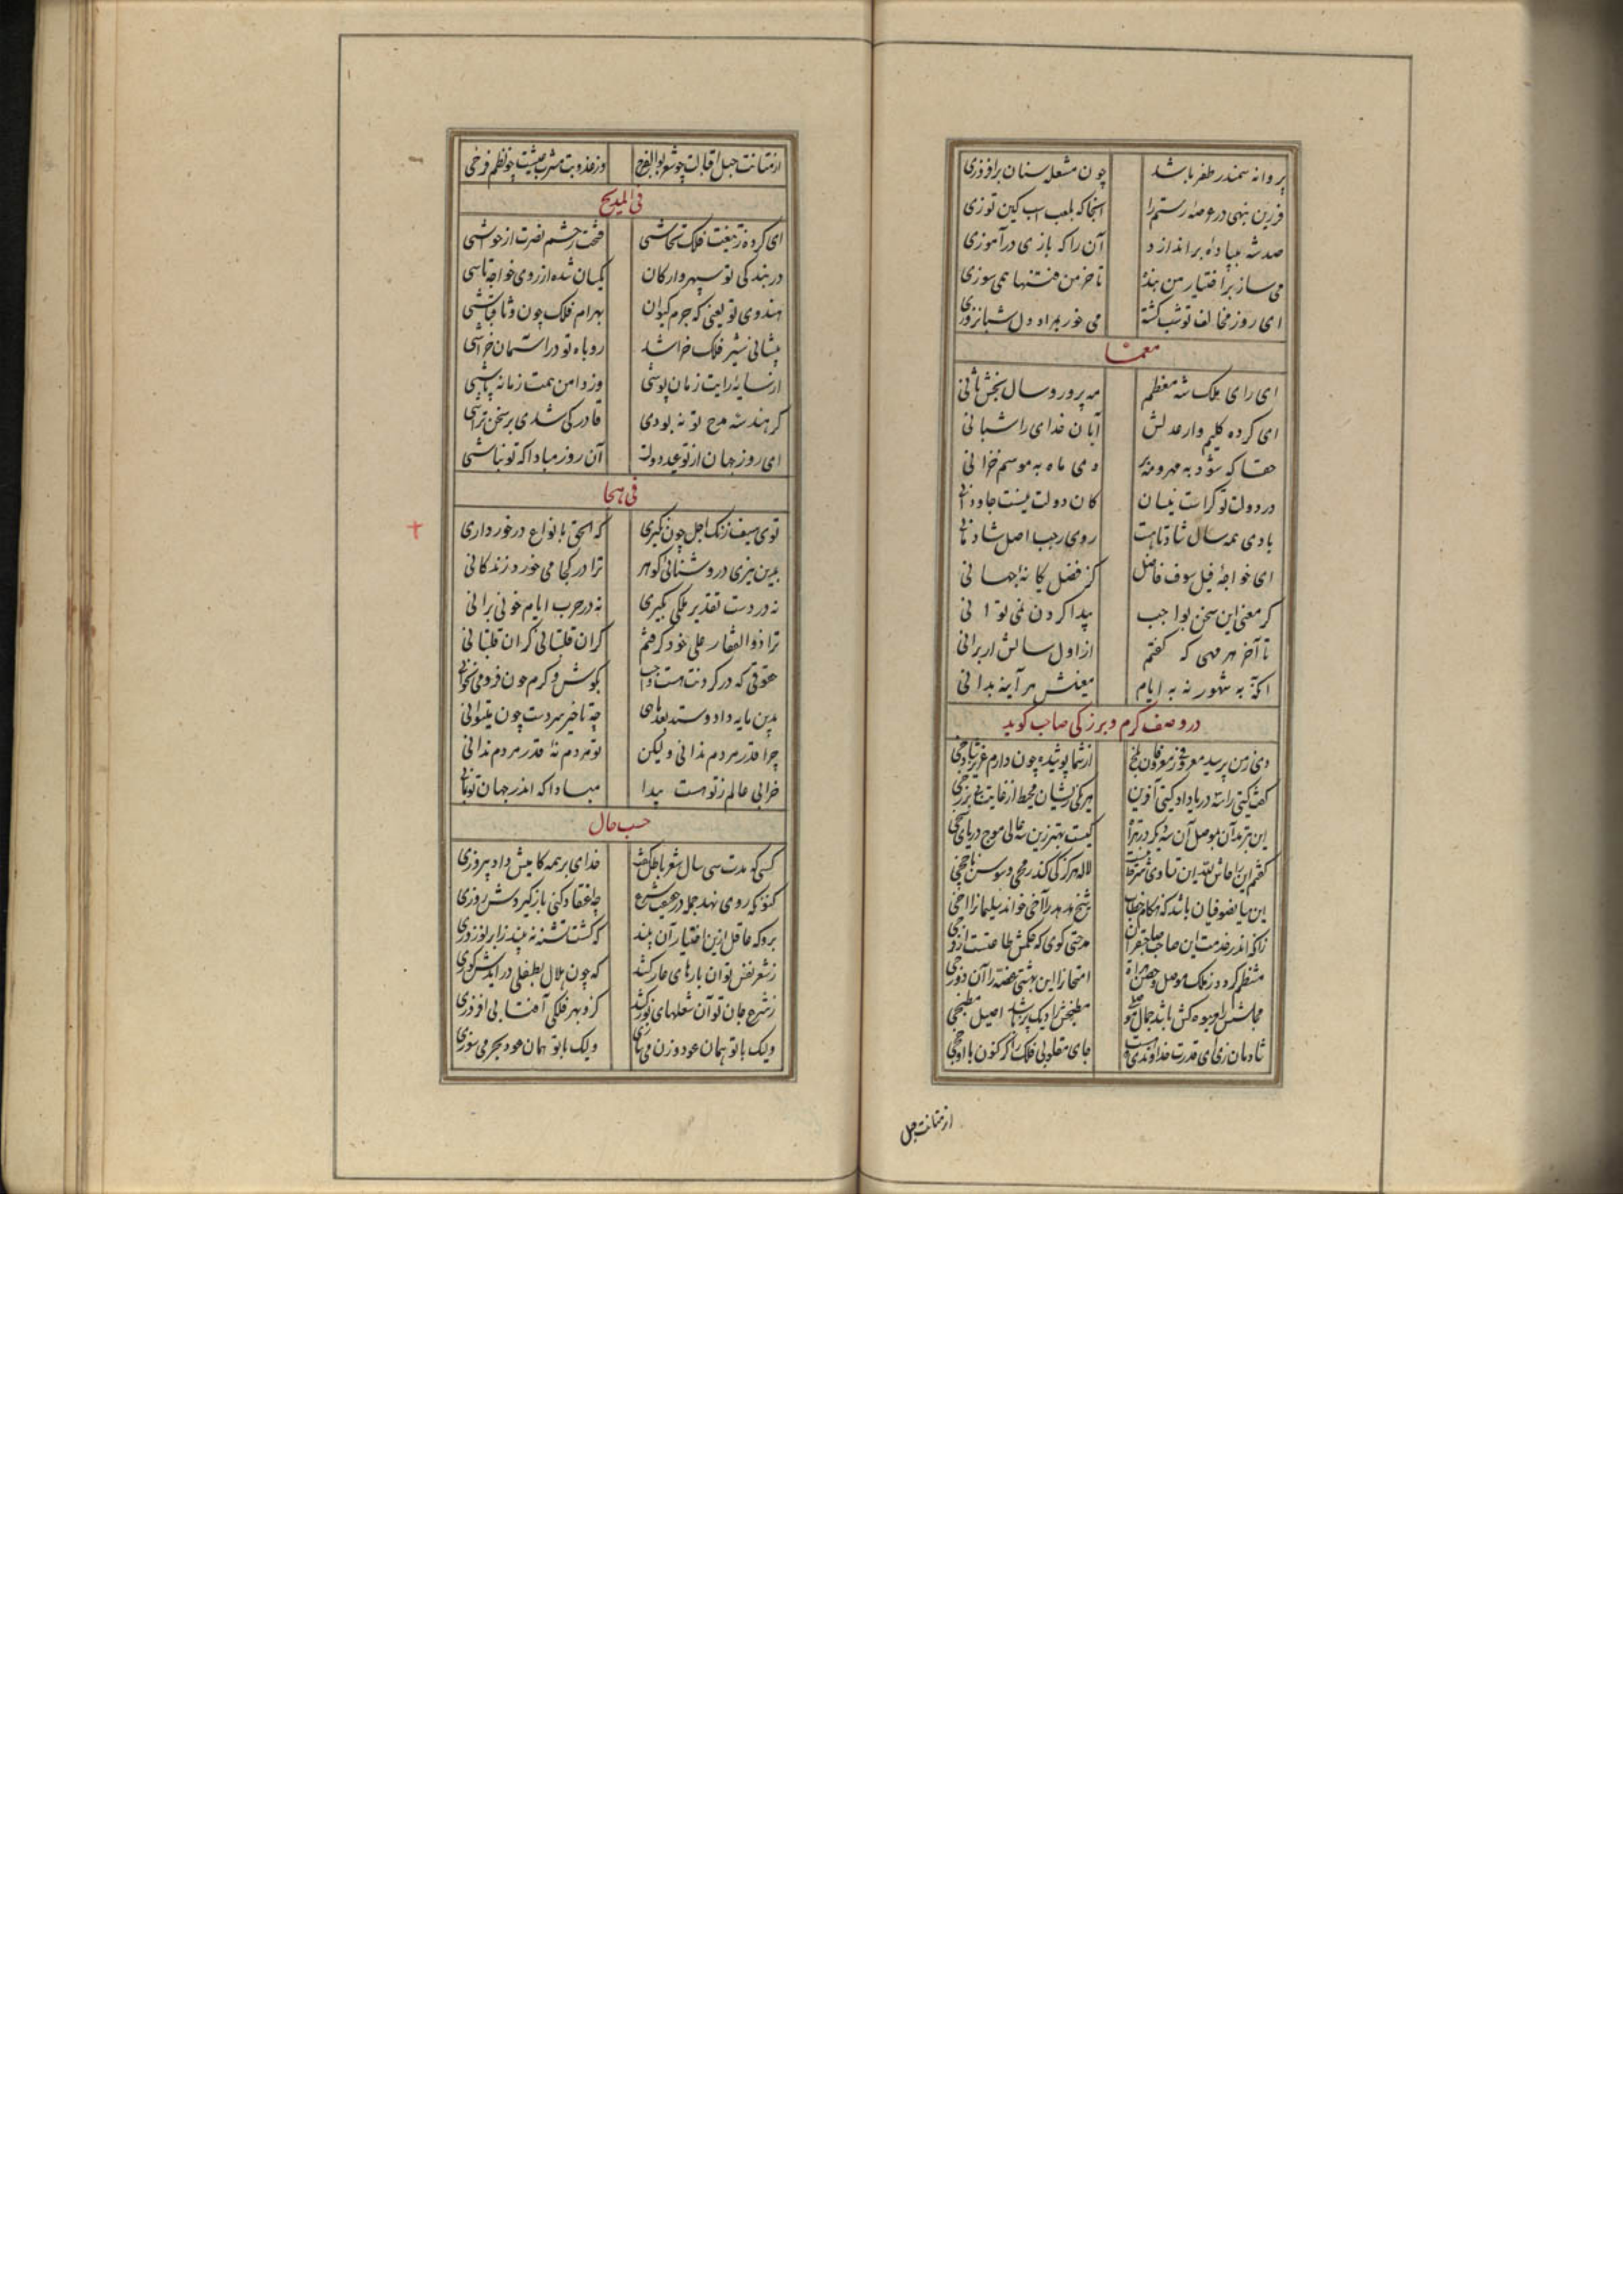 پروانه سمندر ظفر باشد چون مشعل سنان برافروزی
فرزین بنهی در عرصه رستم را آنجا که بلعب اسب کین توزی
صد شه به پیاده براندازد آن را که بازی درآموزی
می ساز بر اختیار من بنده تا خرمن فتنها همی سوزی
ای روز مخالف تو شب گشته می خور بمراد دل شبانروزی
معما
ای رای ملک شه معظم مه پرور و سال بخش ثانی
ای کرده کلیم وار عدلش آبان خدای را شبانی
حقا که شود به مهر و مه بر دی ماه به موسم خزانی
در دولت تو کراست نیسان کان دولت نیست جاودانی
بادی همه سال شاد تا هست روی رجب اصل شادمانی
ای خواجه فیلسوف فاضل کز فضل یگانه جهانی
گر معنی این سخن بواجب پیدا کردن نمی توانی
تا آخر هر مهی که گفتم از اول سالش ار برانی
آنکه به شهور نه به ایام معنیش هر آینه بدانی
در وصف کرم و بزرگی صاحب گوید
دی ز من پرسید معروفی ز معروفان بلخ از شما پوشیده چون دارم عزیز شادخی
گفت گیتی را سه دریا داد گیتی آفرین هر یکی زیشان محیط از غایت بی برزخی
این بترمد آن بموصل آن سه دیگر در هراة کیست بهتر زین سه عالی موج دریای سخی
گفتم این را حاش لله این تساوی شرط نیست لاله هرگز کی کند رمحی و سوسن ناچخی
این بیا بصوفیان باشد که هنگام خطاب شیخ هدهد را اخی خواند سلیمان را اخی
زانکه اندر خدمت این صاحب صاحبقران مدحتی گوی که حکمش طاعتست از فرخی
منتظم گردد ز ملک موصل و حصن هراة امتحان را این بهشتی خصه را آن دوزخی
مجلسش را میوه کش باشد جمال موصلی مطبخش را دیک پز شاید اصیل مطبخی
شادمان زی ای قدرت خداوندی که هست جای مقلوبی فلک را گر کنون با او چخی
از متانت حبل
از متانت حبل اقبالت چو شعر بوالفرج وز عذوبت مشرب عیشت چو نظم فرخی
فی المدیح
ای کرده ز تیغت فلک تحاشی فتحت ز حشم نصرت از حواشی
در بندگی تو سپهر و ارکان یکسان شده از روی خواجه تاشی
هندوی تو یعنی که جرم کیوان بهرام فلک چون وثاق باشی
پیشانی شیر فلک خراشد روباه تو در آسمان خراشی
از سایه رایت زمان پوشی وز دامن همت زمانه پاشی
گر هندسه مدح تو نه بودی قادر کی شدی بر سخن تراشی
ای روز جهان از تو عید دولت آن روز مبادا که تو نباشی
فی هجا
توی سیف زنگ اجل چون نگیری که الحق بانواع درخورداری
بدین تیزی و روشنائی گوهر ترا در کجا می خورد زندگانی
نه در دست تقدیر ملکی بگیری نه در حرب ایام خونی برانی
ترا ذوالفقار علی خود گرفتم گران قلتبانی گران قلتبانی
حقوقی که در گردنت هست واجب بگوش و کرم چون فرو می نخوانی
بدین مایه داد و ستد چه تاخیر سردست چون میتوانی
چرا قدر مردم ندانی ولیکن تو مردم نه قدر مردم ندانی
خرابی عالم ز تو هست پیدا مبادا که اندر جهان تو بمانی
حسب حال
کسی که مدت سی سال شعر باطل گفت خدای بر همه کامیش داد پیروزی
کنون که روی نهد جمله در حقیقت شرع چه اعتقاد کنی باز گیردش روزی
برو که عاقل ازین اختیار آن بیند که کشت تشنه نه بیند ز ابر نوروزی
ز شعر نفس تو آن بارهای عار کشد که چون هلال بطفلی درایدش کوزی
ز شرع جان تو آن شعلهای نور کشد کزو بهر فلکی آفتابی افروزی
ولیک با تو همان عود وزن می ولیک با تو همان عود بجمر می سوزی